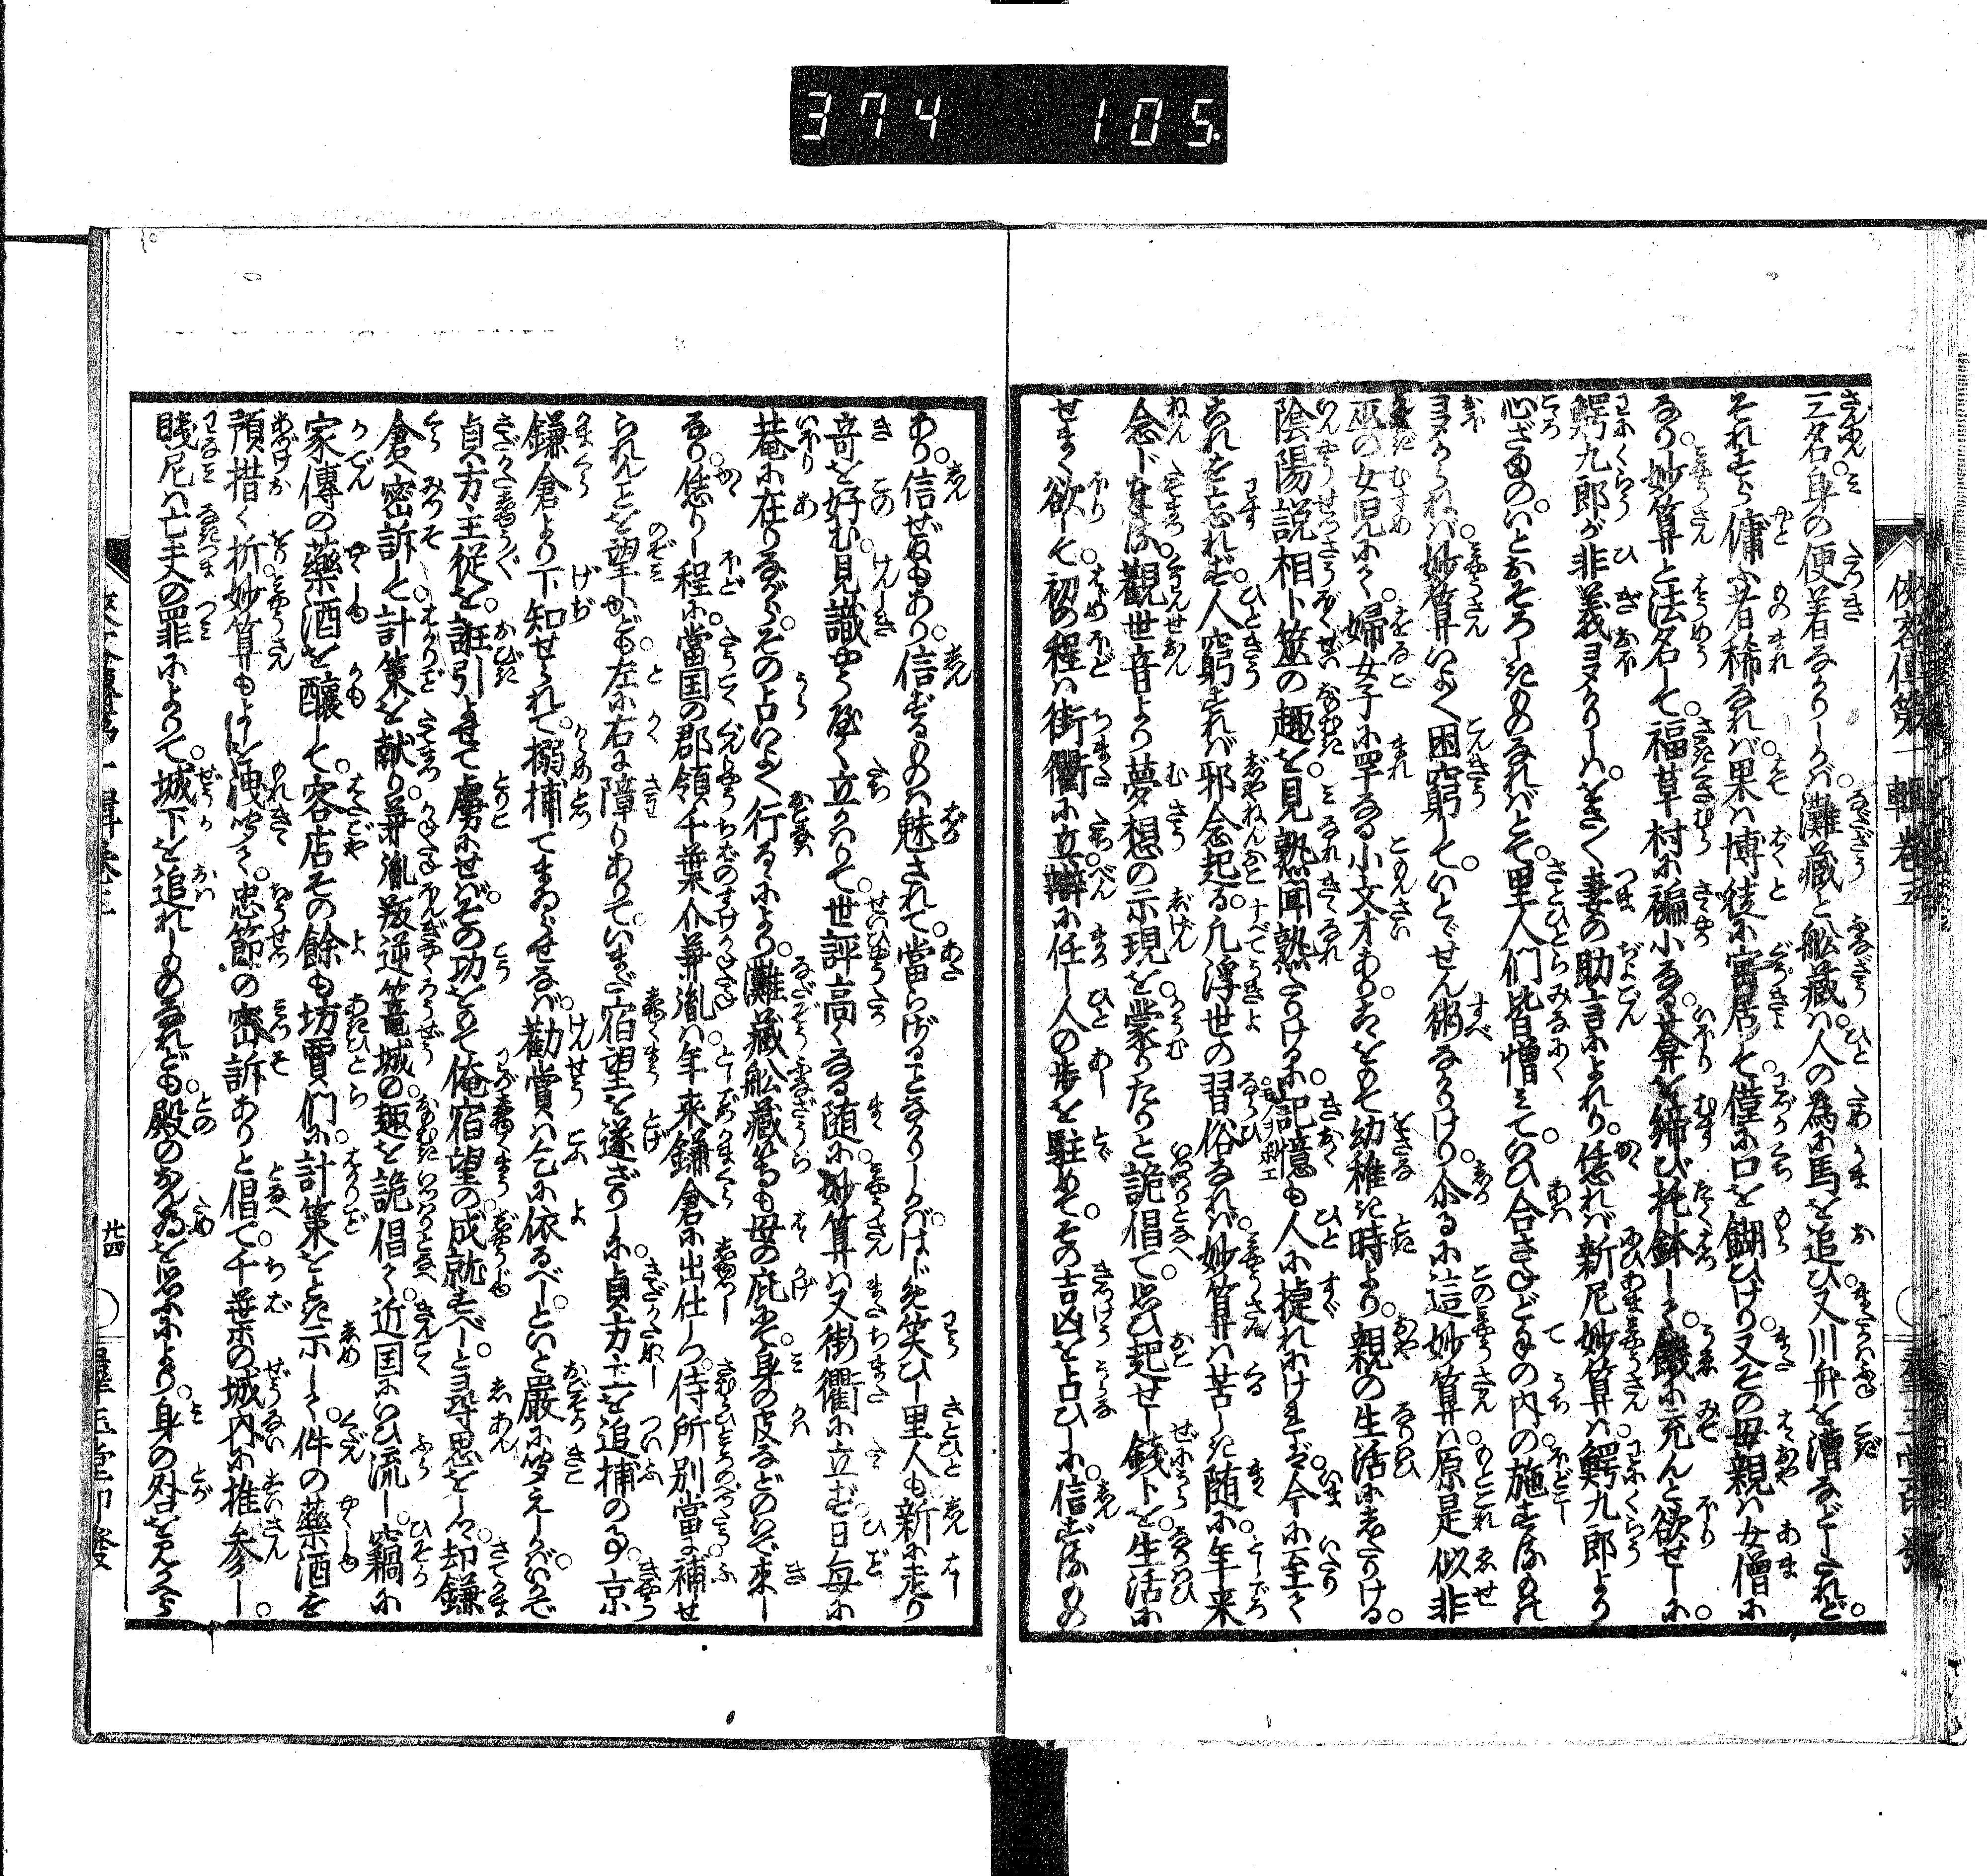 374 105
俠客傳第一輯卷五
三名身の便着なかりしかバ。灘藏と舩藏ハ。人の為に馬を追ひ。又川舟を漕などしたれど。
それすら傭ふ者稀なれバ。果ハ博徒に寓居して。僅に口を餬ひけり。又その母親ハ女僧に
なり。妙算と法名して。福草村に褊小なる。菴を締び托鉢して。饑に充んと欲せしに。
鰐九郎が非義ヨヌかりしハ。をさ〳〵妻の助言によれり。恁れバ新尼妙算ハ。鰐九郎より
心ざまの。いとおそろしきものなれバとて。里人们皆憎ミて。いひ合さねど手の内の。施すものも
ヨヌからねバ。妙算いよ〳〵困窮して。いとゞせん術なかりけり。尒るに這妙算ハ。原是似非
巫の女児にて。婦女子に罕なる小文才あり。こゝをもて幼稚き時より。親の生活にしたりける。
陰陽説相卜筮の趣を。見熟聞熟たりけるに。記憶も人に捷れけれど。今に至て
これを忘れず。人窮すれバ邪念起る。凡浮世の習俗なれバ。妙算ハ苦しき随に。年来
念ずなる。觀世音より夢想の示現を。蒙りたりと詭倡て。思ひ起せし錢卜を。生活に
せまく欲して。初の程ハ街衢に立。辯に任し人の歩を駐めて。その吉凶を占ひしに。信ずるもの
あり。信ぜぬもあり。信ずるものハ魅されて。當らざることなかりしかバ。はじめ笑ひし里人も。新に走り
奇を好む。見識やう歴く立かハりて。世評高くなる随に。妙算ハ又街衢に立ず。日毎に
菴に在りながら。その占いよ〳〵行るゝにより。灘藏舩藏等も母の庇にて。身の皮などのいで来し
なり。恁りし程に。當国の郡領千葉介兼胤ハ。年来鎌倉に出仕しつ。侍所別當に補せ
られんことを望しかども。左に右に障りありて。いまだ宿望を遂ざりしに。貞方主を追捕の事。京
鎌倉より下知せられて。搦捕てまゐらせなバ。勸賞ハ乞に依るべしといと嚴に聞えしかバ。いかで
貞方主従を。誑引よせて虜にせバ。その功をもて俺宿望の成就すべしと尋思をしつゝ。却鎌
倉へ密訴して計策を献り。兼胤叛逆篭城の。趣を詭倡て。近国にいひ流し。竊に
家傳の藥酒を釀して。客店その餘も坊賈们に。計策をとき示して。件の藥酒を
預措く折。妙算もよしを洩聞て。忠節の密訴ありと倡て。千葉の城内に推参し。
賤尼ハ亡夫の罪によりて。城下を追れしものなれども。殿のおん為を思ふにより。身の咎を見かへら
廿四